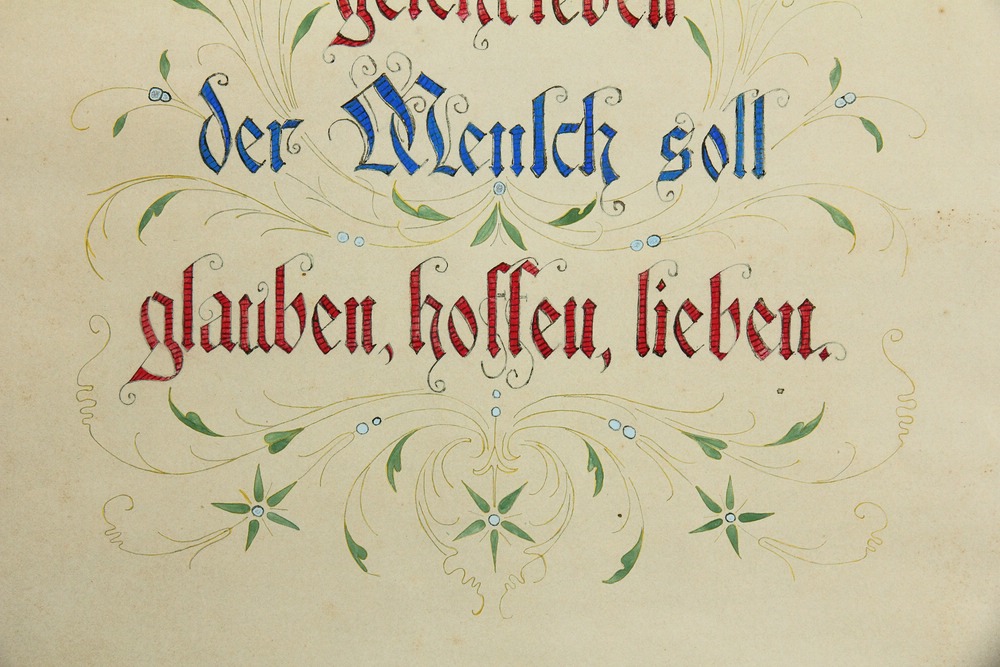 geschrieben
der Mensch soll
glauben, hoffen, lieben.